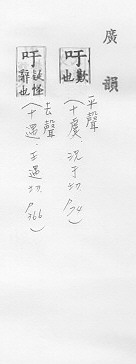 廣韻
吁 歎也
平聲
(十虞.況于切.P74)
吁 疑怪辭也
去聲
(十遇.王遇切.P366)